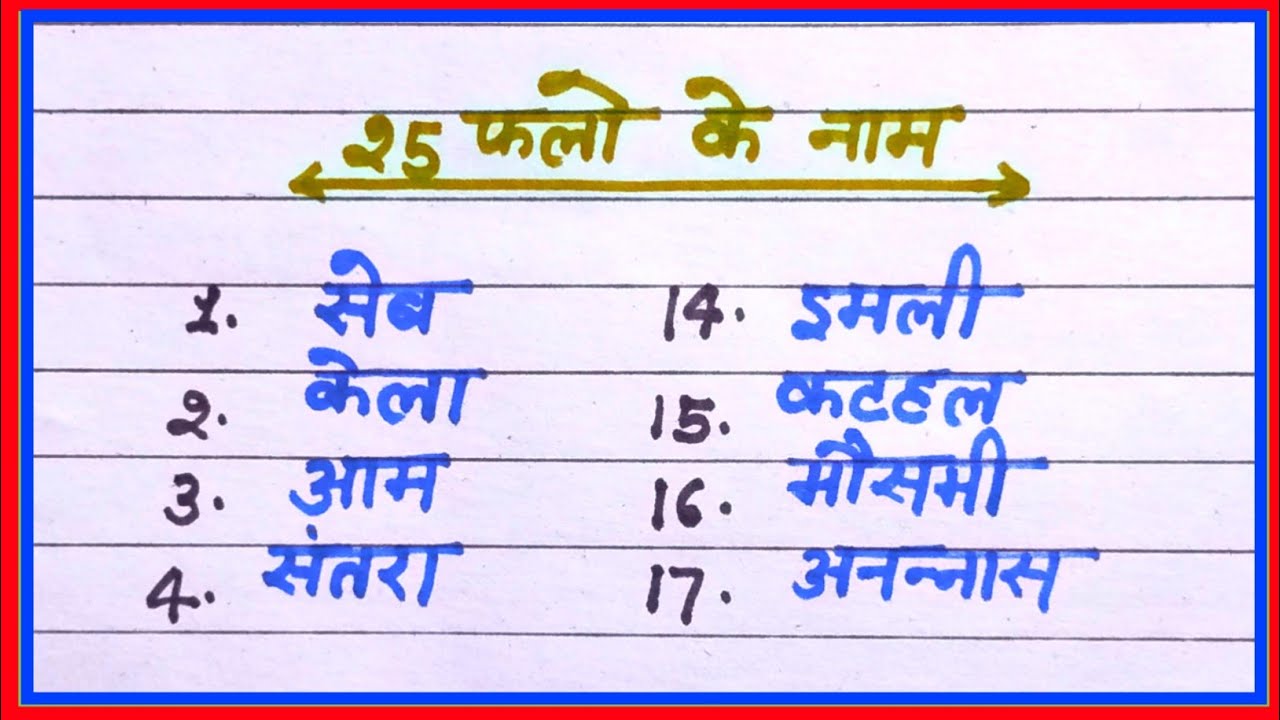 25 फलो के नाम
1. सेब
2. केला
3. आम
4. संतरा
14. इमली
15. कटहल
16. मौसमी
17. अनन्नास